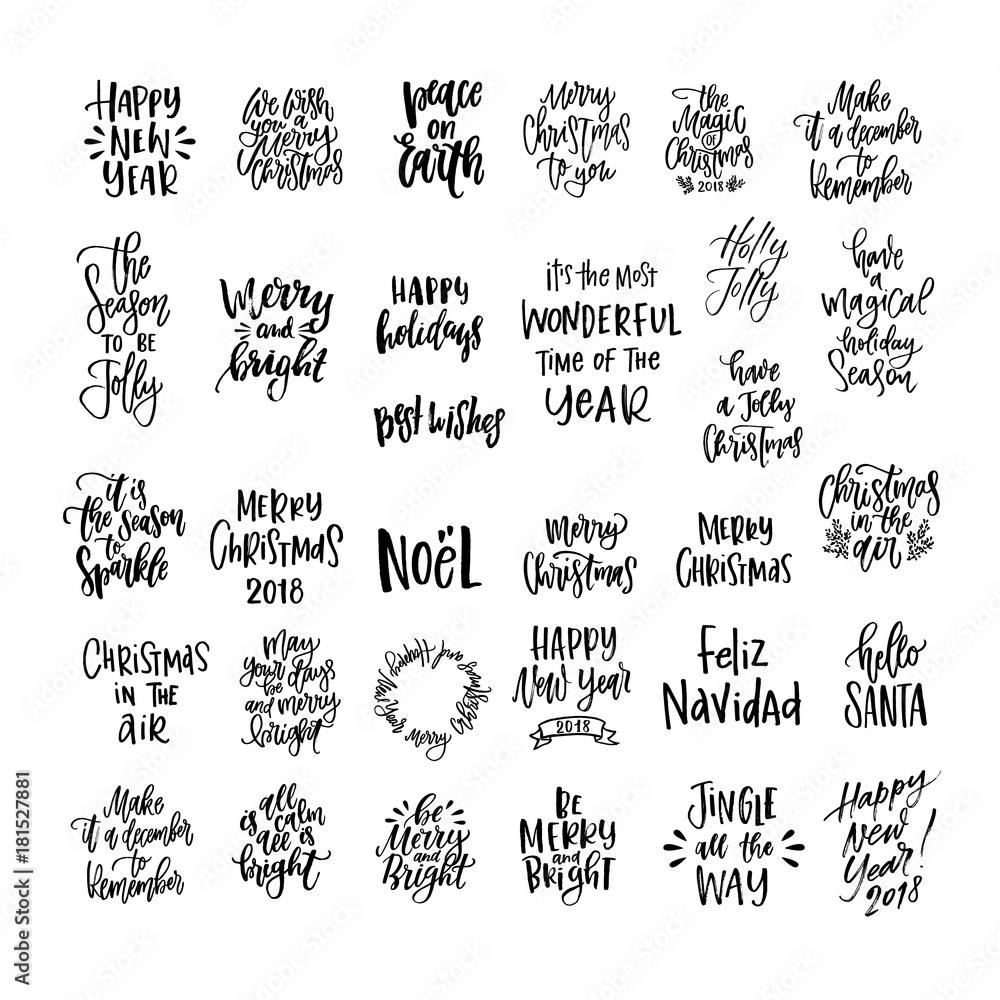 HAPPY
NEW
YEAR
We wish
you a
Merry
Christmas
peace
on
Earth
Merry
Christmas
to you
the
Magic
OF
Christmas
2018
Make
it a december
to
Remember
the
Season
TO BE
Jolly
Merry
and
bright
HAPPY
holidays
Best wishes
it's the most
WONDERFUL
TIME OF THE
YEAR
Holly
Jolly
have
a Jolly
Christmas
have
a
magical
holiday
Season
it is
the season
to
Sparkle
MERRY
CHRISTMAS
2018
NOËL
Merry
Christmas
MERRY
CHRISTMAS
Christmas
in the
air
CHRISTMAS
IN THE
air
May
your days
be
and merry
bright
Merry Christmas and Happy New Year
HAPPY
New Year
2018
Feliz
Navidad
hello
SANTA
Make
it a december
to
Remember
all
is calm
all is
bright
be
Merry
and
Bright
BE
MERRY
and
BRIGHT
JINGLE
all the
WAY
Happy
New
Year!
2018
Adobe Stock | #181527881